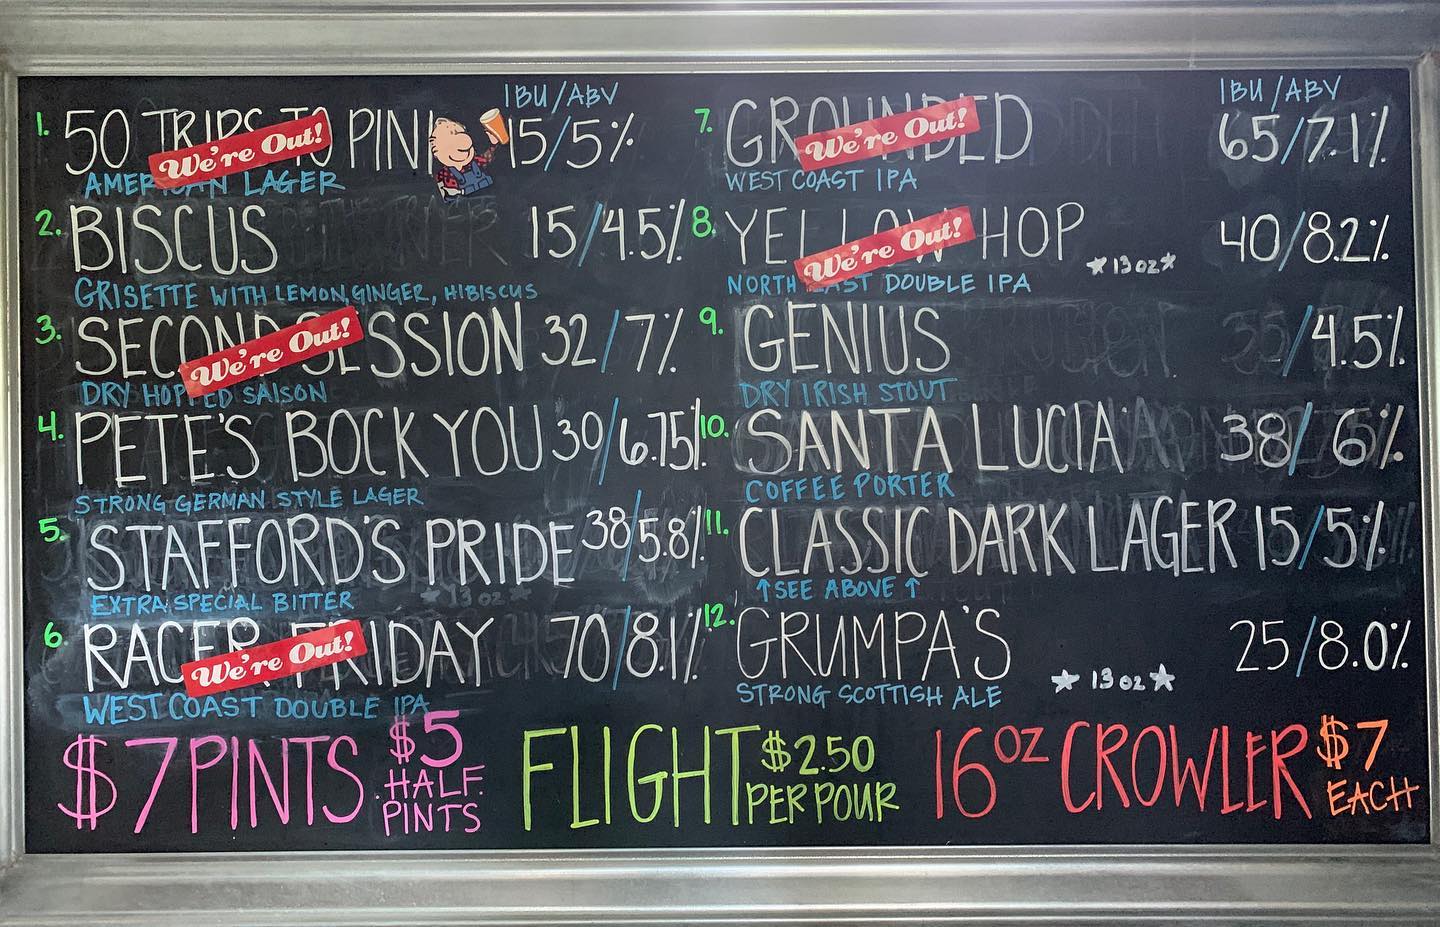 IBU/ABV
1. 50 TRIPS TO PIN 15/5%
We're Out!
AMERICAN LAGER
2. BISCUS 15/4.5%
GRISETTE WITH LEMON, GINGER, HIBISCUS
3. SECOND SESSION 32/7%
We're Out!
DRY HOPPED SAISON
4. PETE'S BOCK YOU 30/6.75%
STRONG GERMAN STYLE LAGER
5. STAFFORD'S PRIDE 38/5.8%
EXTRA SPECIAL BITTER
6. RACER FRIDAY 70/8.1%
We're Out!
WEST COAST DOUBLE IPA
IBU/ABV
7. GROUNDED 65/7.1%
We're Out!
WEST COAST IPA
8. YELLOW HOP 40/8.2%
We're Out!
★13oz★
NORTH EAST DOUBLE IPA
9. GENIUS /4.5%
DRY IRISH STOUT
10. SANTA LUCIA 38/6%
COFFEE PORTER
11. CLASSIC DARK LAGER 15/5%
↑SEE ABOVE↑
12. GRUMPA'S 25/8.0%
★13oz★
STRONG SCOTTISH ALE
$7 PINTS $5 HALF PINTS
FLIGHT $2.50 PER POUR
16oz CROWLER $7 EACH